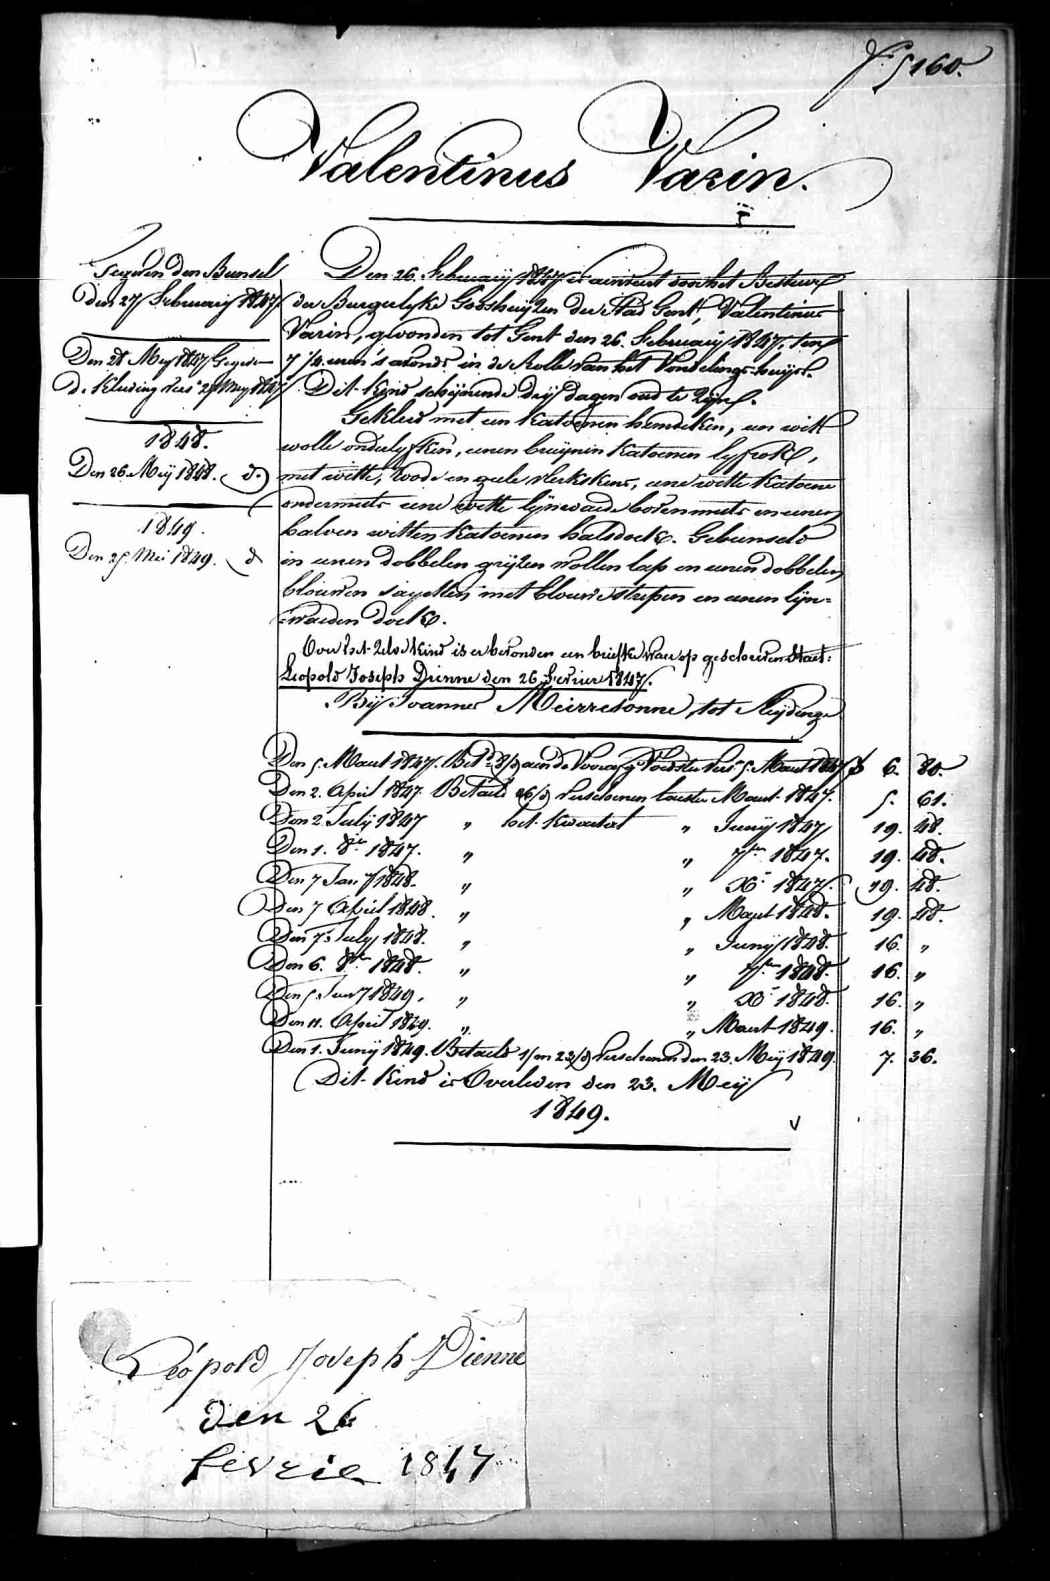 5160.
Valentinus Varin.
Gegeven den Bunsel
den 27 Februarij 1847
Den 28 Meij 1847 Gegeven
de Kleeding vers 27 Meij 1847
1848.
Den 26 Meij 1848. d.
1849.
Den 25 Mei 1849. d
Den 26. Februarij 1847 is aenveert door het Bestuer
der Burgerlyke Godshuijzen der Stad Gent, Valentinus
Varin, gevonden tot Gent den 26. Februarij 1847. ten
7 1/4 uren 's avonds in de Rolle van het Vondelings-huijs.
Dit kind schijnende drij dagen oud te zijn.
Gekleed met een katoenen hemdeken, een witt
wolle onderlyfken, eenen bruijnen katoenen lyfrok,
met witte, roode en geele vlerkskens, eene witte katoene
ondermuts eene witte lijnwaede bovenmuts en eenen
halven witten katoenen halsdoek. Gebunseld
in eenen dobbelen grijzen wollen lap en eenen dobbelen
blouwen sayetten met blouwe strepen en eenen lijn-
waeden doek.
Over het zelve kind is er bevonden een briefke waer op geschreven staet:
Leopold Joseph Dienne den 26 Fevrier 1847.
Bij Joannes Meirresonne tot Sleijdinge
Den 5. Maert 1847. Bet. 8/d aen de Voorafg. Voedster vers 5. Maert 1847 f 6. 80.
Den 2. April 1847. Betaelt 26/d verschenen laesten Maert 1847. 5. 61.
Den 2. Julij 1847 " het kwartael " Junij 1847 19. 48.
Den 1. 8bre 1847. " " 7ber 1847. 19. 48.
Den 7 Jan 1848. " " Xr 1847. 19. 48.
Den 7 April 1848. " " Maert 1848. 19. 48.
Den 7 July 1848. " " Junij 1848. 16. "
Den 6. 8br 1848. " " 7ber 1848. 16. "
Den 5 Janr 1849. " " Xr 1848. 16. "
Den 11. April 1849. " " Maert 1849. 16. "
Den 1. Junij 1849. Betaeld 1/m 23/d verschenen den 23. Meij 1849. 7. 36.
Dit kind is Overleden den 23. Meij
1849.
Léopold Joseph Dienne
den 26
fevrie 1847